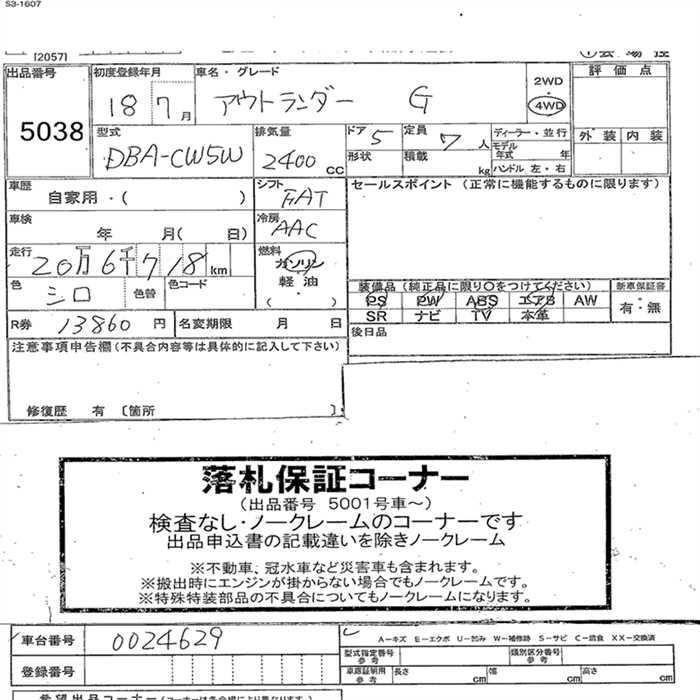 S3-1607
[2057]
出品番号 5038
初度登録年月 18 7月
車名・グレード アウトランダー G
2WD
4WD
評価点
外装 内装
型式 DBA-CW5W
排気量 2400 cc
ドア 5
形状
定員 7人
積載 kg
ディーラー・並行
モデル年式 年
ハンドル 左・右
車歴 自家用・( )
シフト FAT
セールスポイント (正常に機能するものに限ります)
車検 年 月( 日)
冷房 AAC
走行 20万6千718km
燃料 ガソリン
軽油
(・)
色 シロ
色替
色コード
装備品 (純正品に限り○をつけてください)
新車保証書
有・無
PS PW ABS エアB AW
SR ナビ TV 本革
R券 13860円
名変期限 月 日
後日品
注意事項申告欄(不具合内容等は具体的に記入して下さい)
修復歴 有 〔箇所 〕
落札保証コーナー
(出品番号 5001号車~)
検査なし・ノークレームのコーナーです
出品申込書の記載違いを除きノークレーム
※不動車、冠水車など災害車も含まれます。
※搬出時にエンジンが掛からない場合でもノークレームです。
※特殊特装部品の不具合についてもノークレームになります。
車台番号 0024629
登録番号
A-キズ E-エクボ U-凹み W-補修跡 S-サビ C-腐食 XX-交換済
型式指定番号 参考
類別区分番号 参考
車庫証明用 参考 長さ cm 幅 cm 高さ cm
希望出品コーナー(コーナーは各会場により異なります)